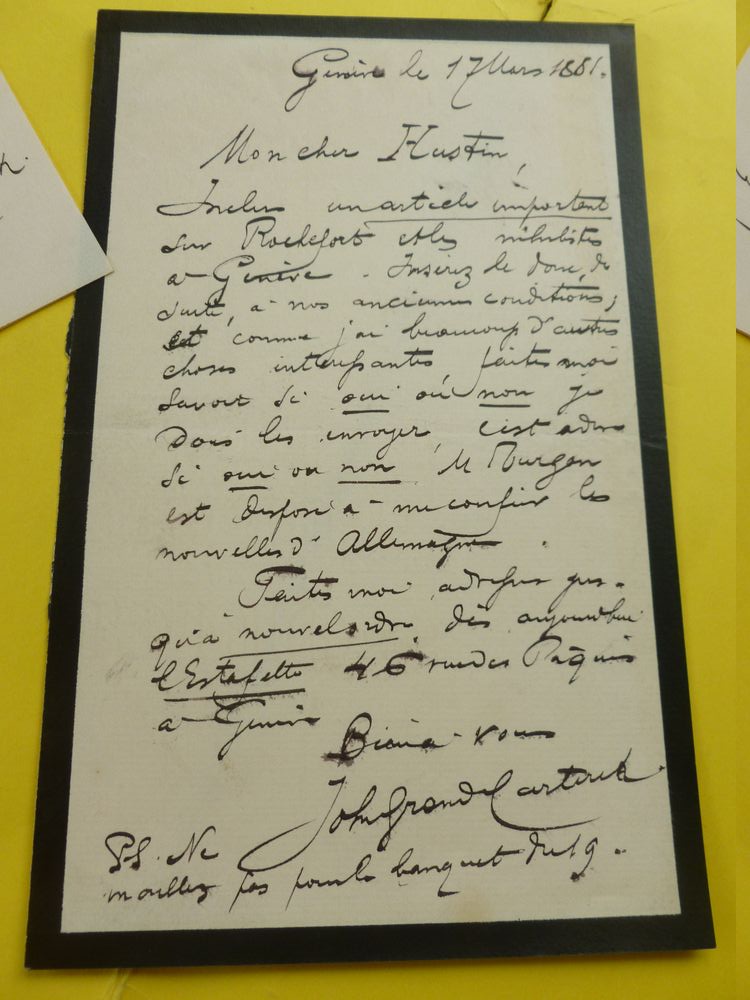 Genève le 17 Mars 1881.
Mon cher Hustin,
Inclus un article important
sur Rochefort et les nihilistes
à Genève. Insérez le donc, de
suite, à nos anciennes conditions;
et comme j'ai beaucoup d'autres
choses intéressantes, faites moi
savoir si oui ou non je
dois les envoyer, c'est à dire
si oui ou non M
est disposé à me confier les
nouvelles d'Allemagne.
Faites moi adresser jus-
qu'à nouvel ordre, dès aujourd'hui
l'Estafette 46 rue des Pâquis
à Genève
Bien à vous
John Grand Carteret
PS. Ne
pas pour le banquet du 19.